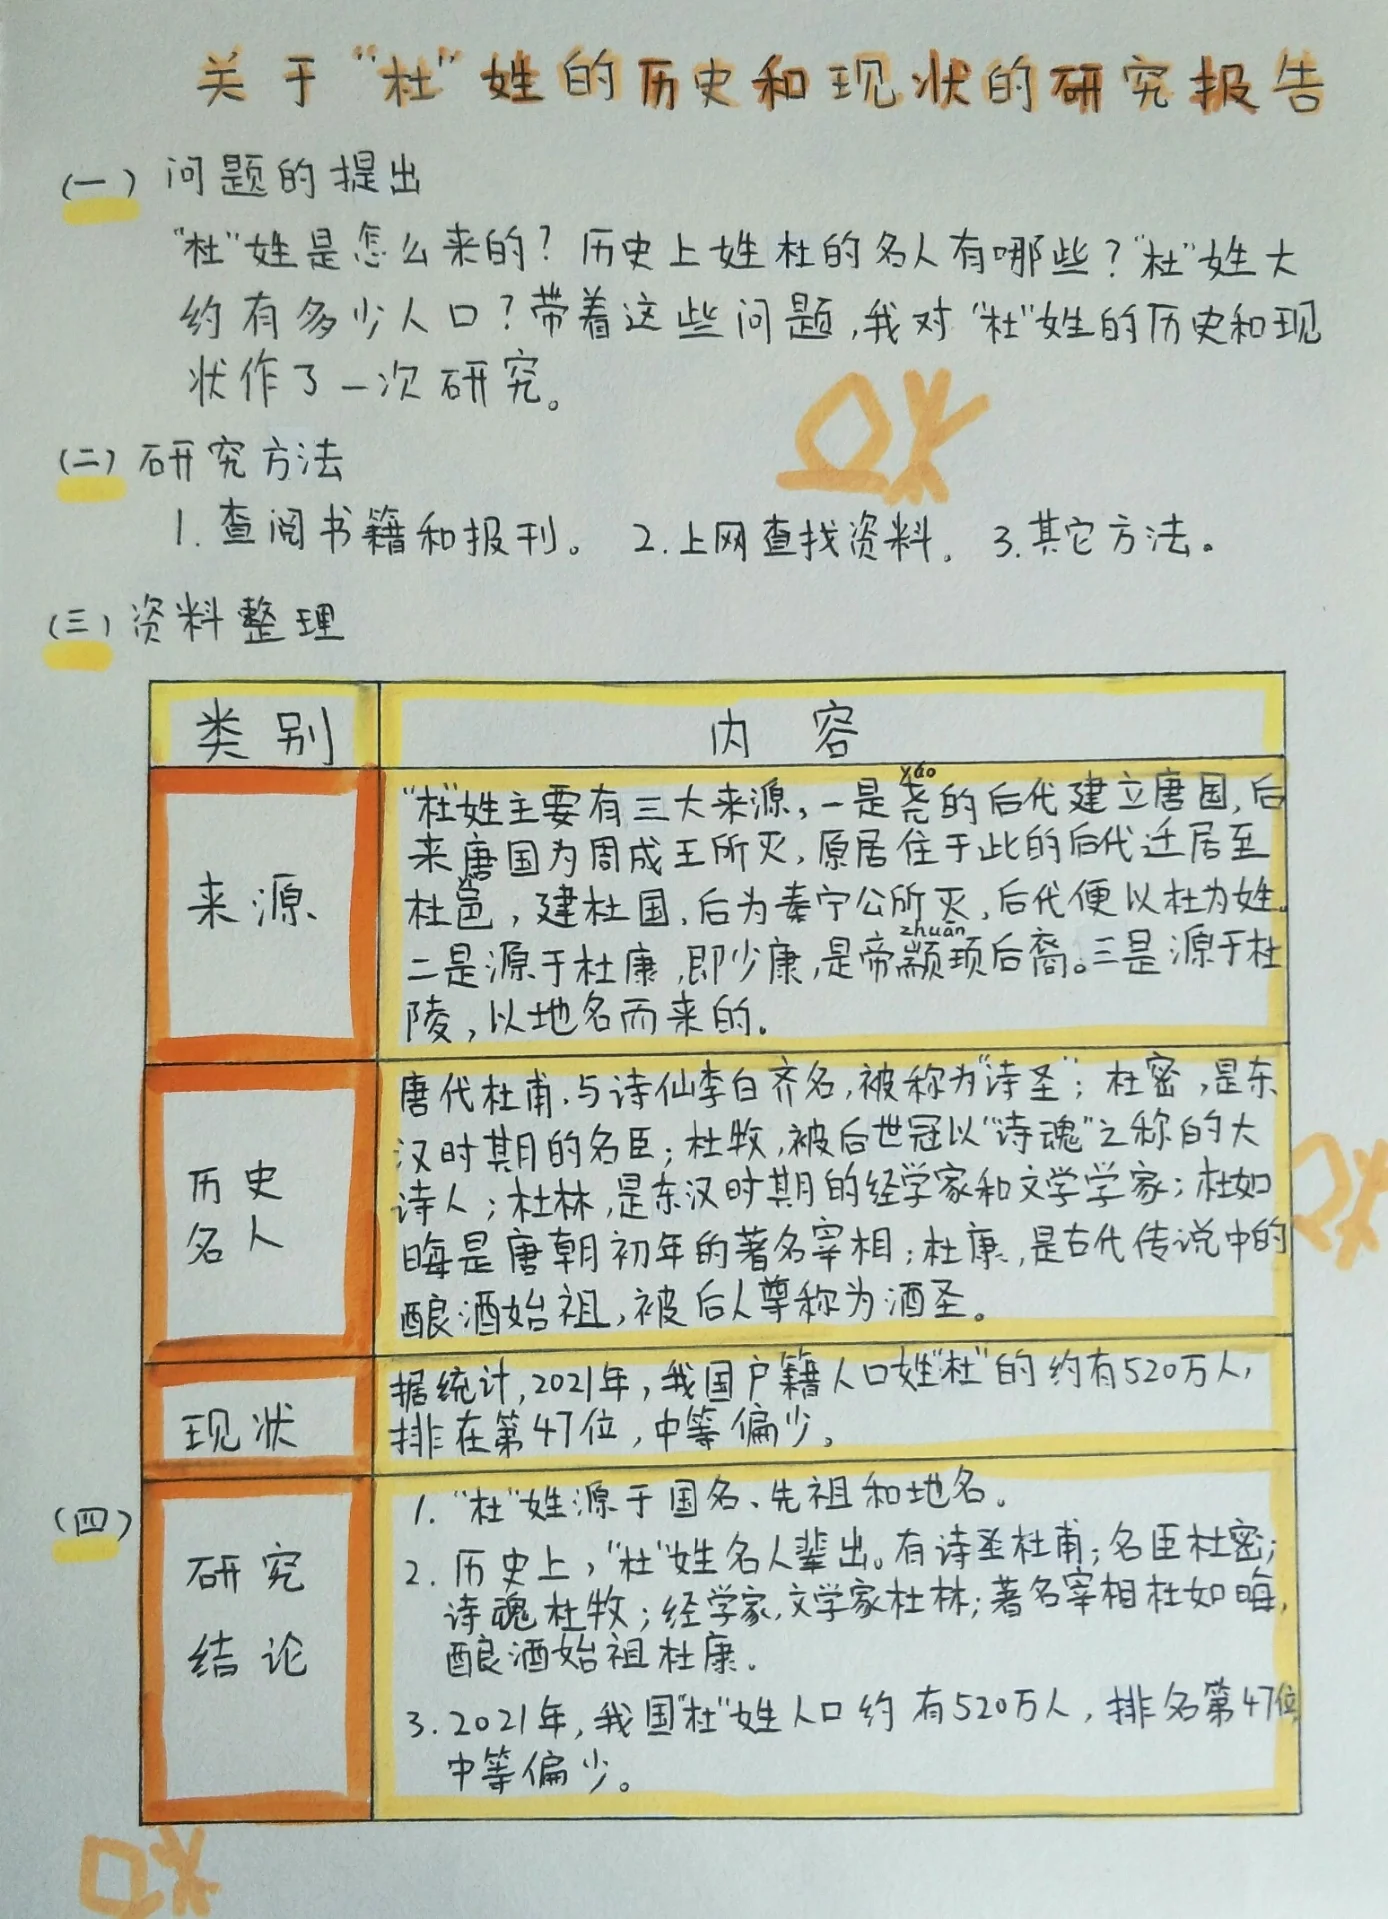 关于“杜”姓的历史和现状的研究报告
(一) 问题的提出
“杜”姓是怎么来的?历史上姓杜的名人有哪些?“杜”姓大
约有多少人口?带着这些问题,我对“杜”姓的历史和现
状作了一次研究。
(二) 研究方法
1. 查阅书籍和报刊。 2. 上网查找资料。 3. 其它方法。
(三) 资料整理
类别 内容
来源
yáo
“杜”姓主要有三大来源,一是尧的后代建立唐国,后
来唐国为周成王所灭,原居住于此的后代迁居至
杜邑,建杜国,后为秦宁公所灭,后代便以杜为姓。
zhuān
二是源于杜康,即少康,是帝颛顼后裔。三是源于杜
陵,以地名而来的。
历史
名人
唐代杜甫,与诗仙李白齐名,被称为“诗圣”;杜密,是东
汉时期的名臣;杜牧,被后世冠以“诗魂”之称的大
诗人;杜林,是东汉时期的经学家和文学学家;杜如
晦是唐朝初年的著名宰相;杜康,是古代传说中的
酿酒始祖,被后人尊称为酒圣。
现状
据统计,2021年,我国户籍人口姓“杜”的约有520万人,
排在第47位,中等偏少。
(四)
研究
结论
1. “杜”姓源于国名、先祖和地名。
2. 历史上,“杜”姓名人辈出。有诗圣杜甫;名臣杜密;
诗魂杜牧;经学家,文学家杜林;著名宰相杜如晦,
酿酒始祖杜康。
3. 2021年,我国“杜”姓人口约有520万人,排名第47位,
中等偏少。